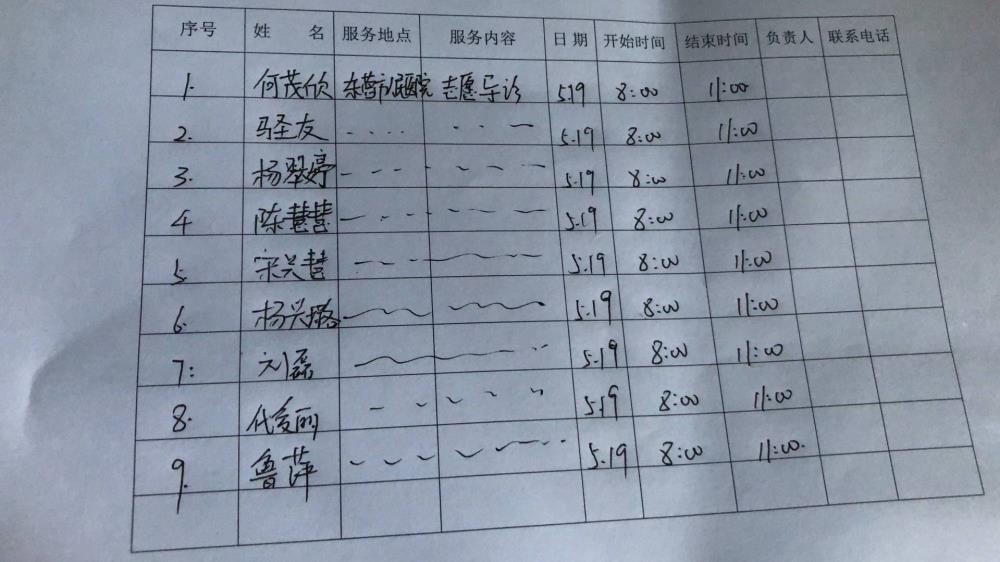 序号 姓 名 服务地点 服务内容 日期 开始时间 结束时间 负责人 联系电话
1. 何茂欣 东营市人民医院 志愿导诊 5.19 8:00 11:00
2. 马圣友 5.19 8:00 11:00
3. 杨翠婷 5.19 8:00 11:00
4 陈慧慧 5.19 8:00 11:00
5. 宋兴慧 5.19 8:00 11:00
6. 杨兴 5.19 8:00 11:00
7: 刘磊 5.19 8:00 11:00
8. 代爱丽 5.19 8:00 11:00
9. 鲁萍 5.19 8:00 11:00.